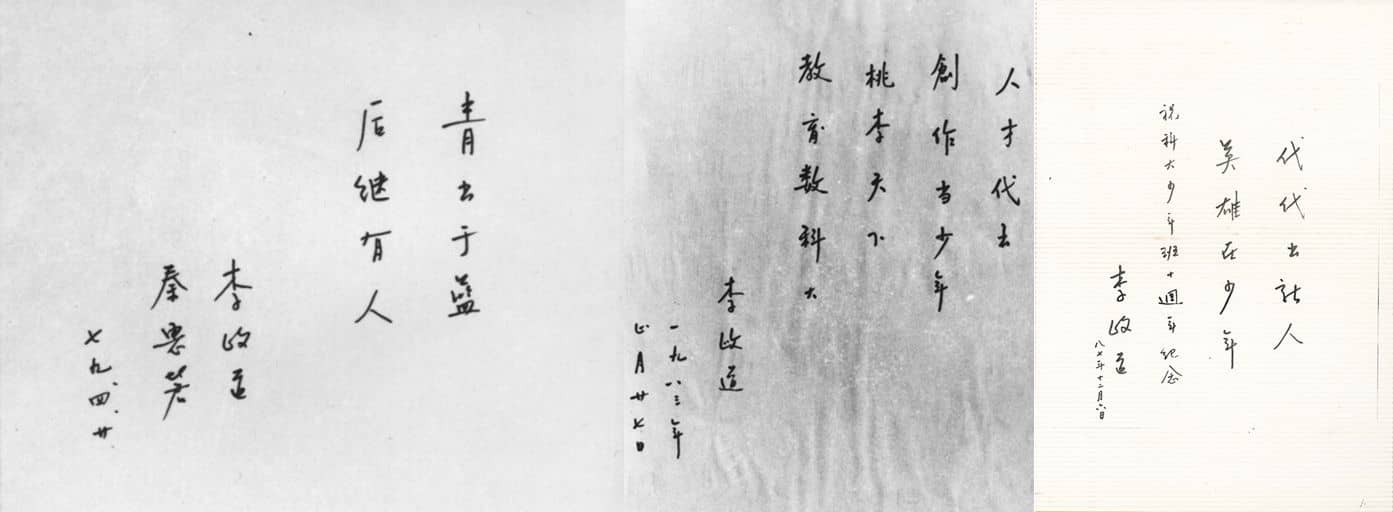 青出于藍
后继有人
李政道
秦惠䇹
七九.四.廿.
人才代代出
創作当少年
桃李天下
教育数科大
李政道
一九八三年
正月廿七日
代代出新人
英雄在少年
祝科大少年班十週年纪念
李政道
八七年十二月六日